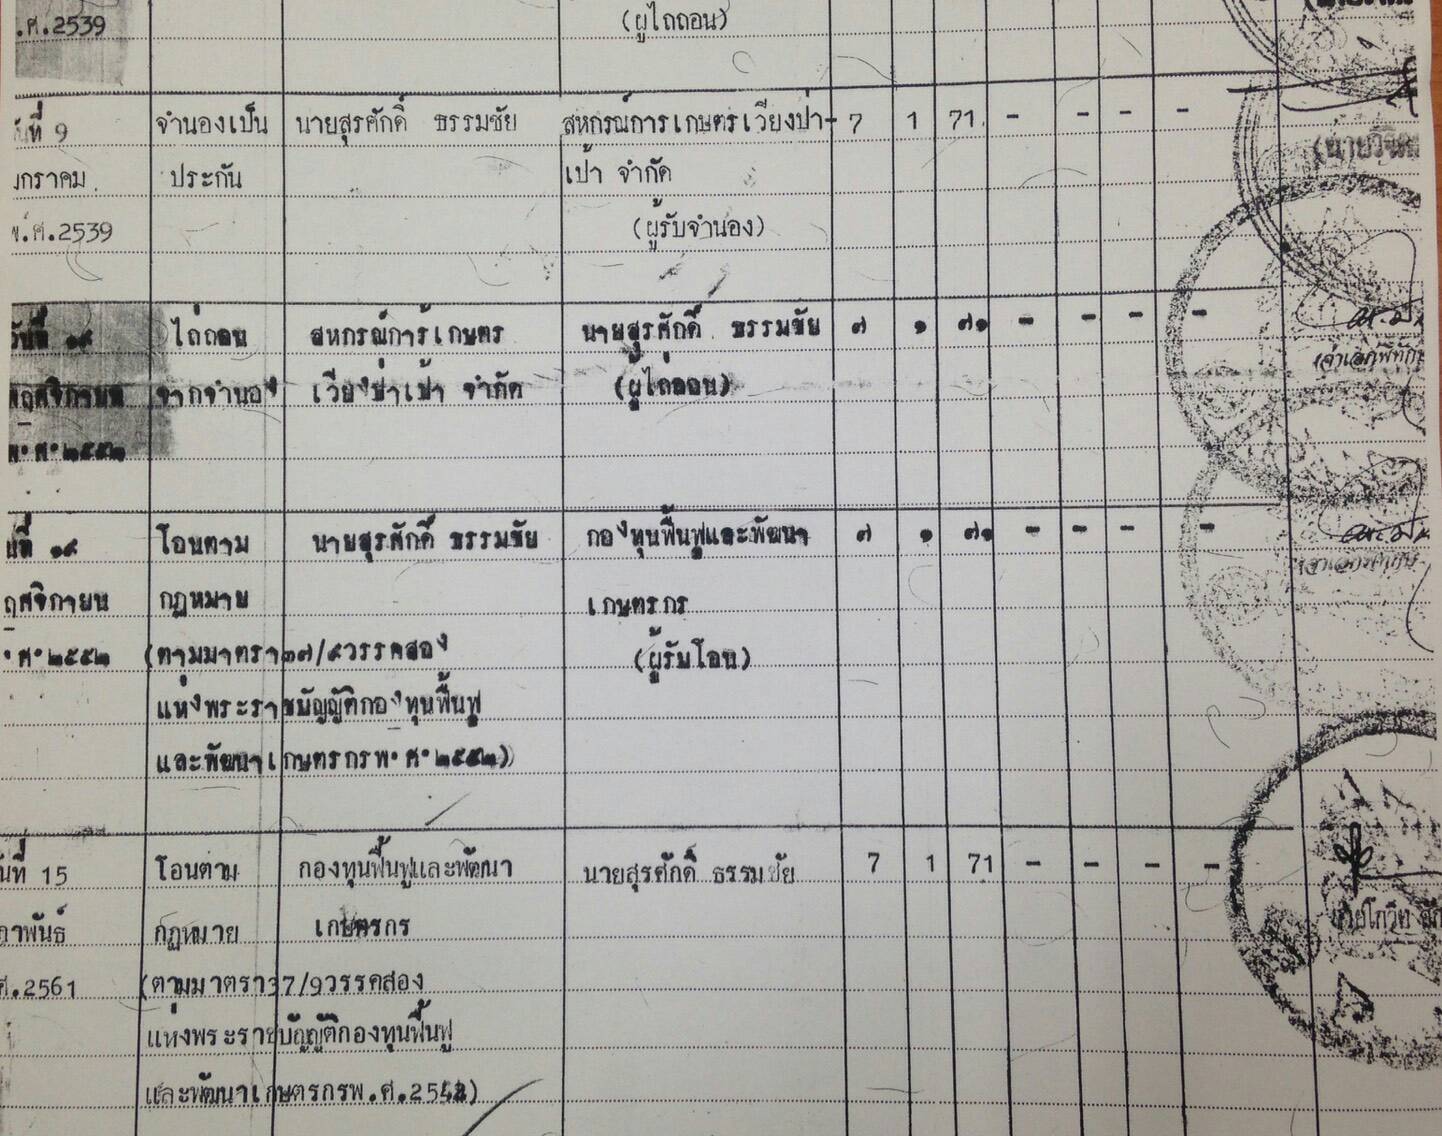 .ศ.2539
(ผู้ไถ่ถอน)
วันที่ 9 จำนองเป็น นายสุรศักดิ์ ธรรมชัย สหกรณ์การเกษตรเวียงป่า- 7 1 71 - - - -
มกราคม ประกัน เป้า จำกัด
พ.ศ.2539 (ผู้รับจำนอง)
วันที่ ๑๙ ไถ่ถอน สหกรณ์การเกษตร นายสุรศักดิ์ ธรรมชัย ๗ ๑ ๗๑ - - - -
พฤศจิกายน จากจำนอง เวียงป่าเป้า จำกัด (ผู้ไถ่ถอน)
พ.ศ.๒๕๕๒
นที่ ๑๙ โอนตาม นายสุรศักดิ์ ธรรมชัย กองทุนฟื้นฟูและพัฒนา ๗ ๑ ๗๑ - - - -
ฤศจิกายน กฎหมาย เกษตรกร
.ศ.๒๕๕๒ (ตามมาตรา๓๗/๙วรรคสอง (ผู้รับโอน)
แห่งพระราชบัญญัติกองทุนฟื้นฟู
และพัฒนาเกษตรกรพ.ศ.๒๕๔๒)
นที่ 15 โอนตาม กองทุนฟื้นฟูและพัฒนา นายสุรศักดิ์ ธรรมชัย 7 1 71 - - - -
ภาพันธ์ กฎหมาย เกษตรกร
ศ.2561 (ตามมาตรา37/9วรรคสอง
แห่งพระราชบัญญัติกองทุนฟื้นฟู
และพัฒนาเกษตรกรพ.ศ.2542)